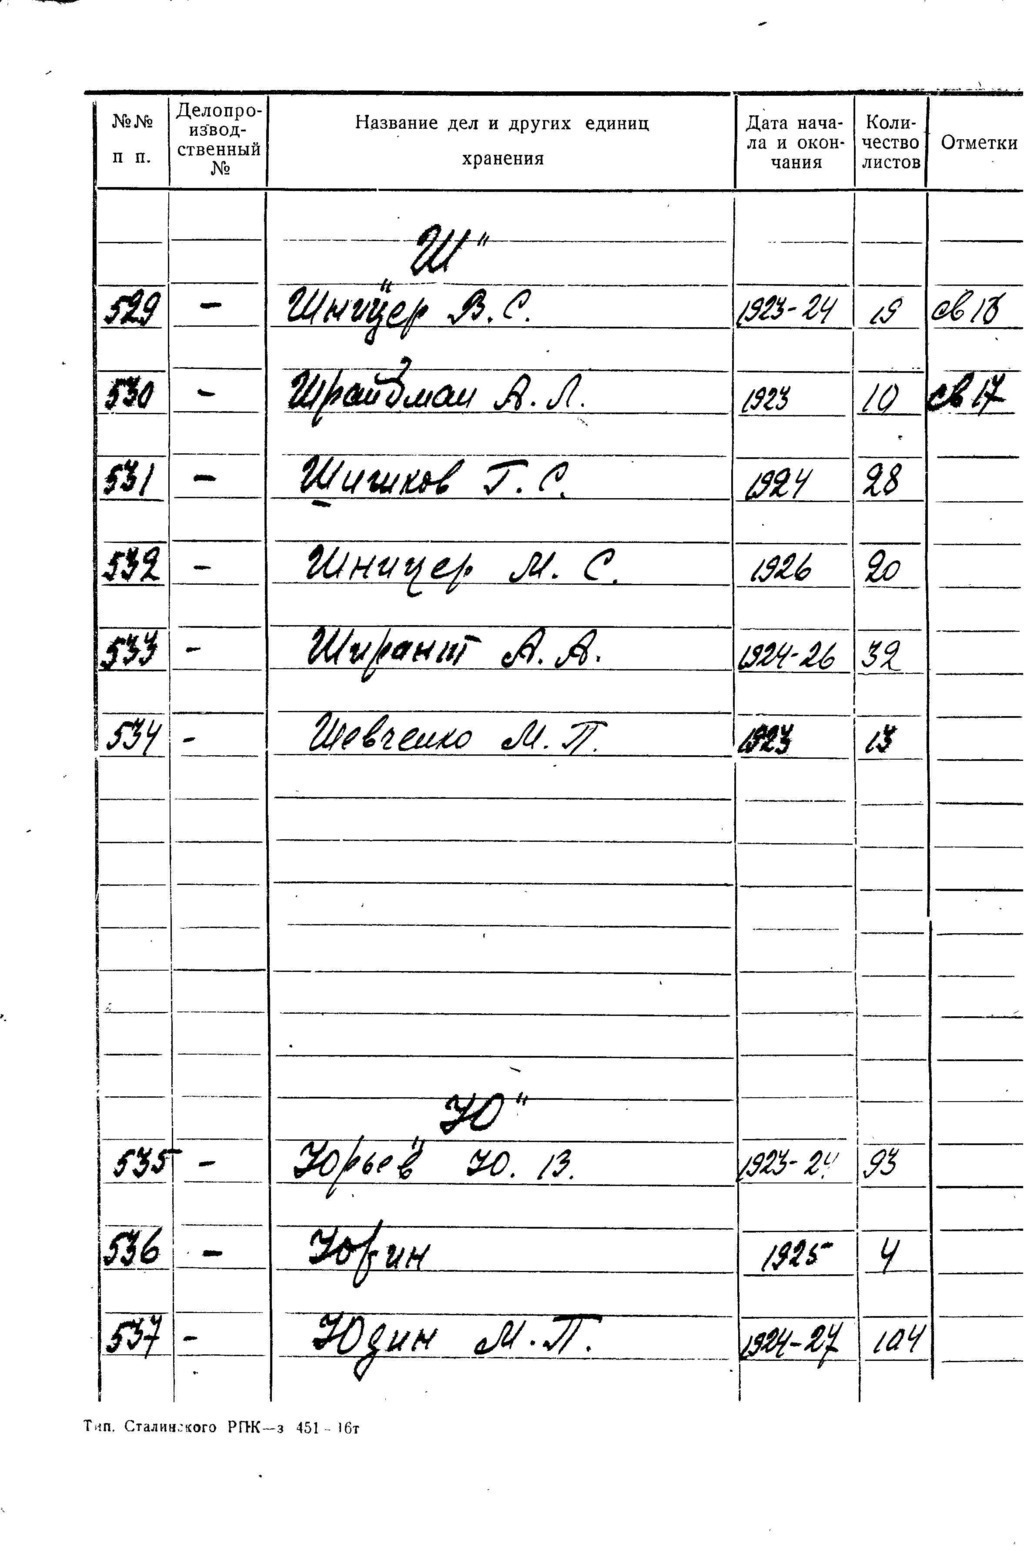 №№ п п. Делопроизводственный № Название дел и других единиц хранения Дата начала и окончания Количество листов Отметки
Ш"
529 – Шницер В. С. 1923-24 19 св 13
530 – Шрайбман А. Л. 1923 10 св 17
531 – Шишков Г. С. 1924 28
532 – Шницер М. С. 1926 20
533 – Ширант А. А. 1924-26 32
534 – Шевченко М. П. 1923 13
Ю"
535 – Юрьев Ю. В. 1923-24 93
536 – Юрин 1925 4
537 – Юдин М. П. 1924-27 104
Тип. Сталинского РПК—з 451 - 16т